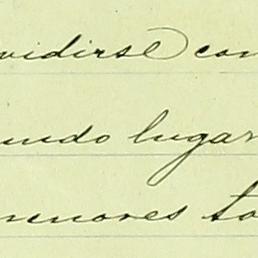 vidirse con
undo lugar
menores to